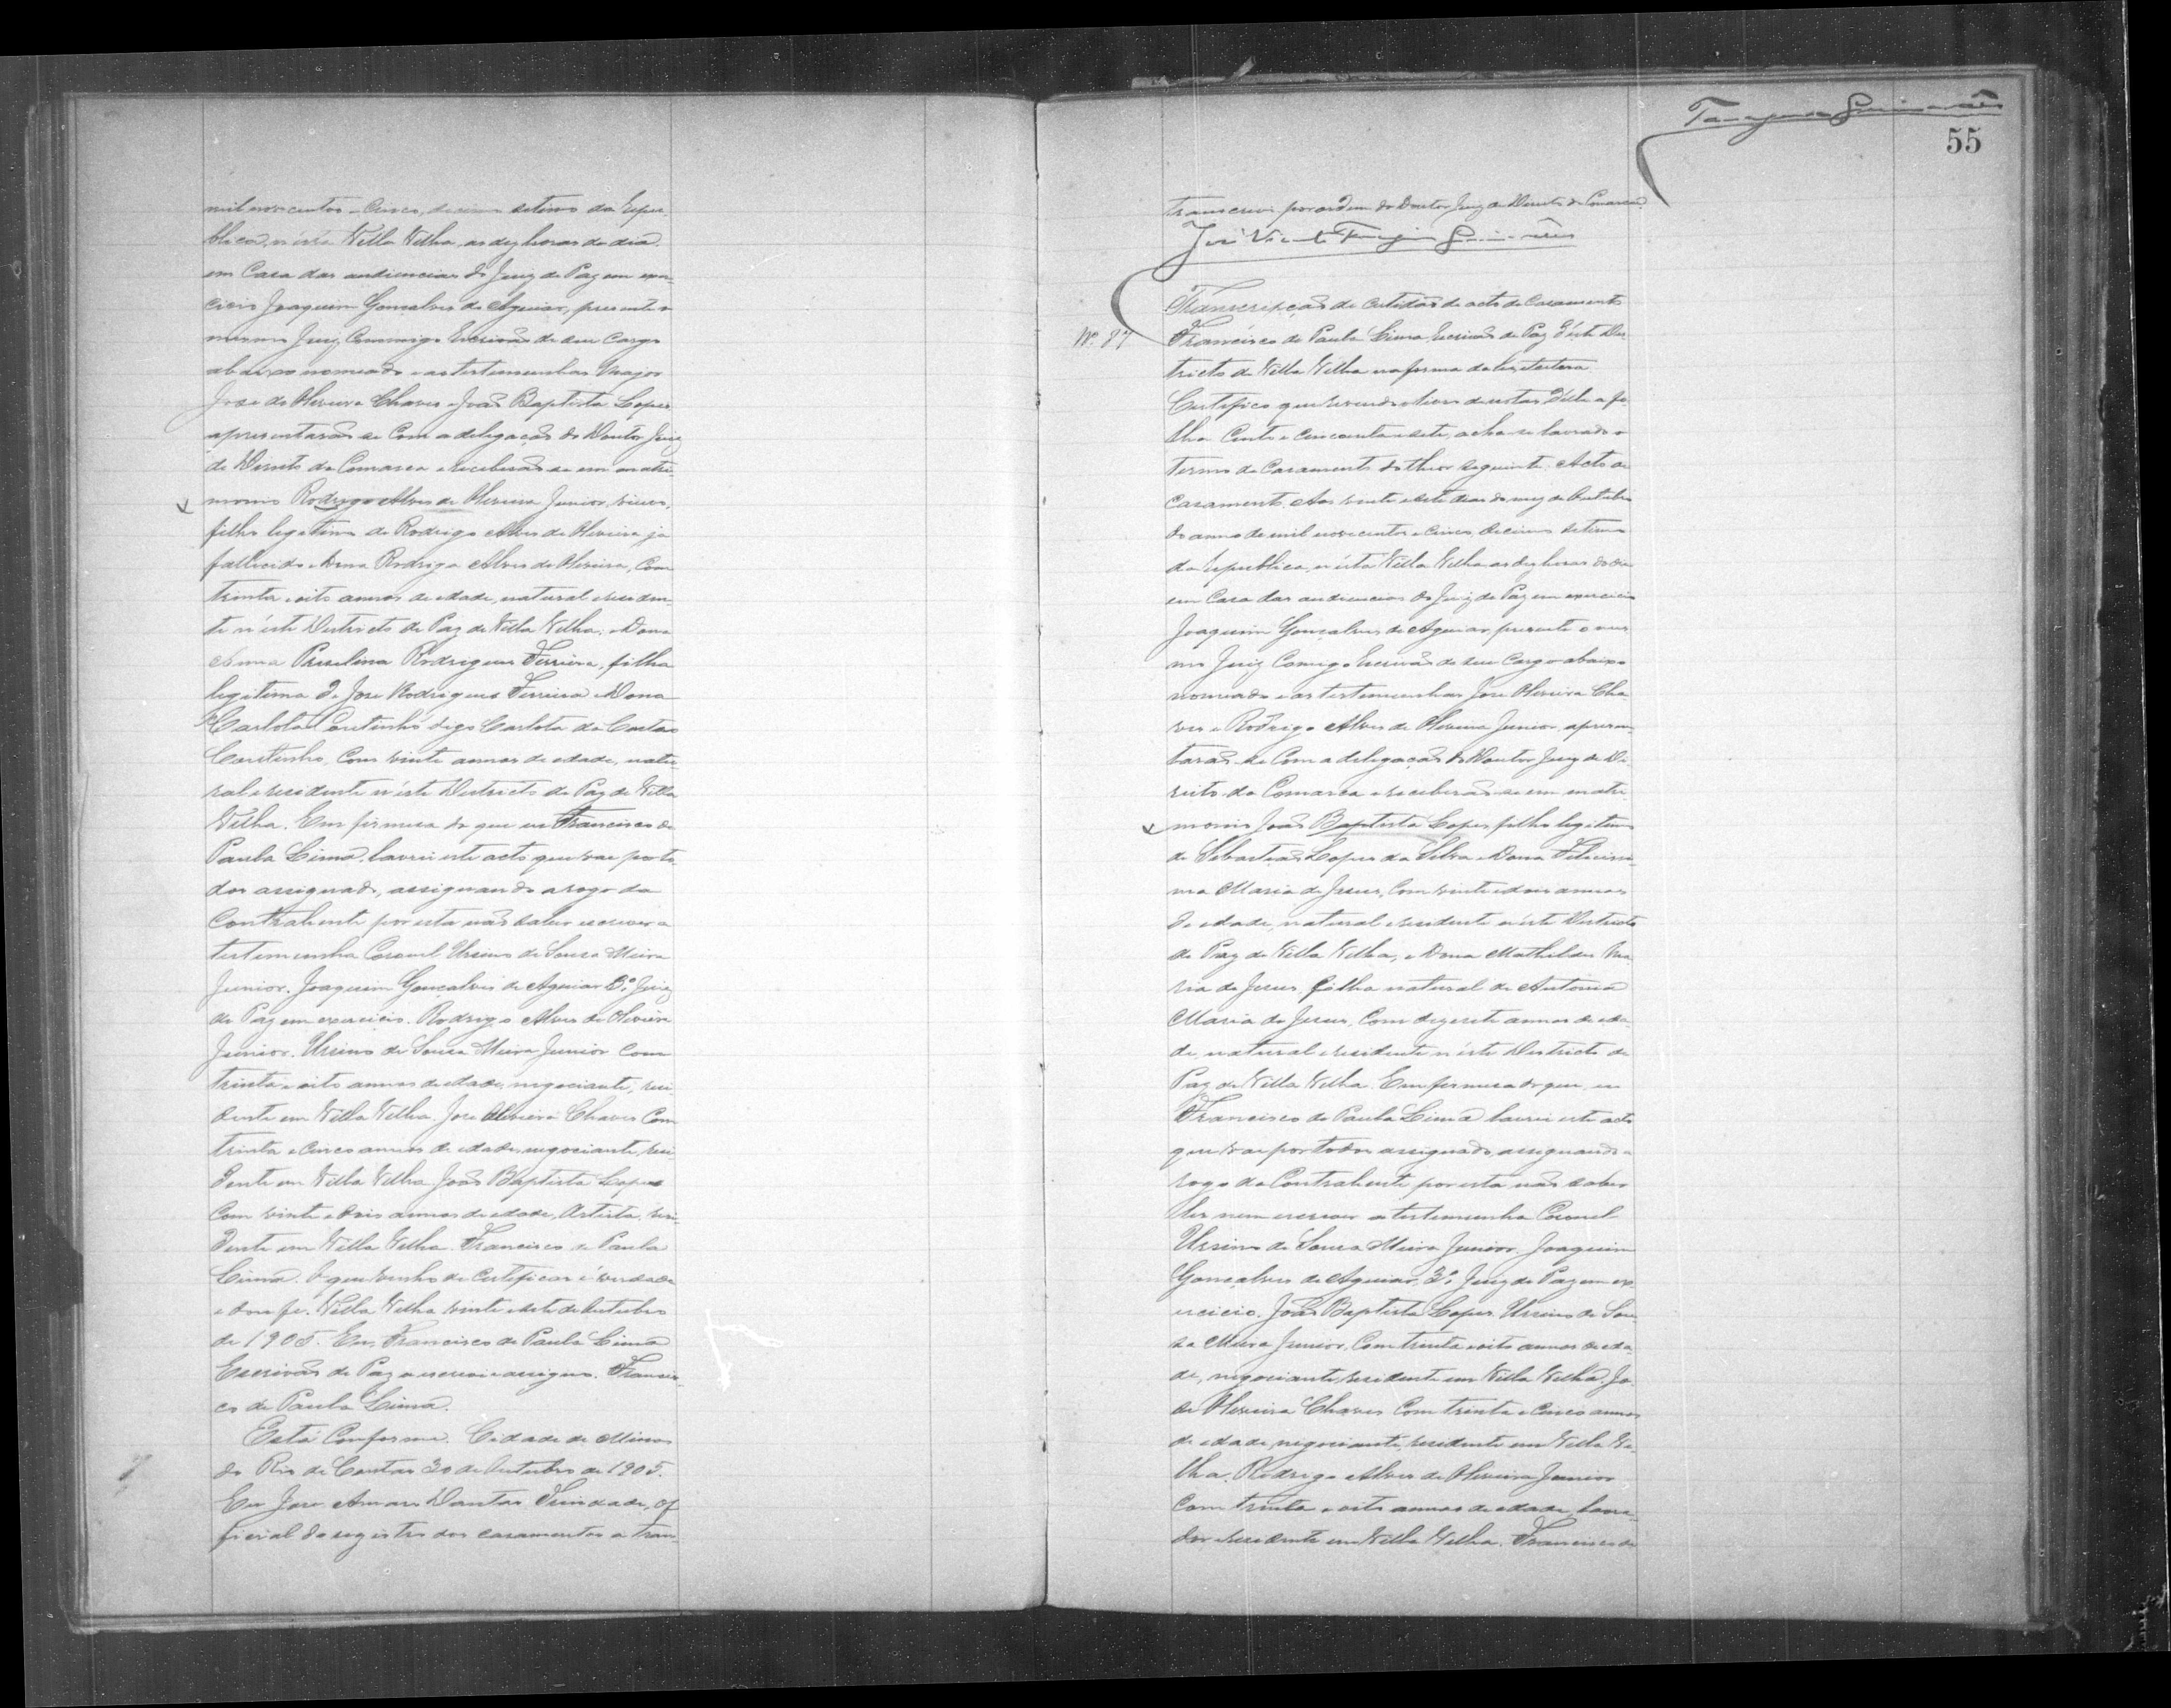 mil novecentos e Cinco, decimo setimo da Repu-
blica, n'esta Villa Velha, as dez horas do dia
em Casa das audiencias do Juiz de Paz em exer-
cicio Joaquim Gonçalves de Aguiar, presente o
mesmo Juiz Commigo Escrivão de seu Cargo
abaixo nomeado e as testemunhas Major
José de Oliveira Chaves e João Baptista Lopes
apresentarão-se com a delegação do Doutor Juiz
de Direito da Comarca e receberão-se em matri-
monio Rodrigo Alves de Oliveira Junior, viuvo,
filho legitimo de Rodrigo Alves de Oliveira ja
fallecido e Dona Rodriga Alves de Oliveira, com
trinta e oito annos de edade, natural e residen-
te n'este Districto de Paz de Villa Velha; e Dona
Anna Rodrigues Ferreira, filha
legitima de José Rodrigues Ferreira e Dona
Carlota Coutinho digo Carlota da Costa
Coutinho, com vinte annos de edade, natu-
ral e residente n'este Districto de Paz de Villa
Velha. Em firmeza do que eu Francisco de
Paula Lima, lavrei este acto que vae por to-
dos assignado, assignando a rogo da
Contrahente por esta não saber escrever a
testemunha Coronel Ursino de Sousa Meira
Junior. Joaquim Gonçalves de Aguiar 3º Juiz
de Paz em exercicio. Rodrigo Alves de Oliveira
Junior. Ursino de Sousa Meira Junior com
trinta e oito annos de edade, negociante, resi-
dente em Villa Velha. José Oliveira Chaves com
trinta e cinco annos de edade, negociante, resi-
dente em Villa Velha João Baptista Lopes
com vinte e dois annos de edade, Artista, resi-
dente em Villa Velha. Francisco de Paula
Lima. O que venho de certificar é verdade
e dou fé. Villa Velha vinte e sete de Outubro
de 1905. Eu, Francisco de Paula Lima
Escrivão de Paz o escrevi e assigno. Francis-
co de Paula Lima.
Está Conforme. Cidade de Minas
do Rio de Contas 30 de Outubro de 1905.
Eu José Amaro Dantas Trindade, Of-
ficial do registro dos casamentos a trans-
55
transcrevi por ordem do Doutor Juiz de Direito da Comarca.
José Vicente Guimarães
Transcripção de certidão de acto de Casamento
Nº 87 Francisco de Paula Lima, Escrivão de Paz d'este Dis-
tricto de Villa Velha na forma da lei etcetera.
Certifico que revendo o livro de notas d'elle a fo-
lha Cento e cincoenta e sete, acha-se lavrado o
termo de Casamento do theor seguinte. Acto de
Casamento. Aos vinte e sete dias do mez de Outubro
do anno de mil novecentos e cinco, decimo setimo
da Republica, n'esta Villa Velha as dez horas do dia
em Casa das audiencias do Juiz de Paz em exercicio
Joaquim Gonçalves de Aguiar presente o mes-
mo Juiz Comigo Escrivão de seu Cargo abaixo
nomeado e as testemunhas José Oliveira Cha-
ves e Rodrigo Alves de Oliveira Junior, apresen-
tarão-se com a delegação do Doutor Juiz de Di-
reito da Comarca e receberão-se em matri-
monio João Baptista Lopes, filho legitimo
de Sebastião Lopes da Silva e Dona
Maria de Jesus, com vinte e dois annos
de edade, natural e residente n'este Districto
de Paz de Villa Velha, e Dona Mathildes Ma-
ria de Jesus, filha natural de Antonia
Maria de Jesus, com dezesete annos de eda-
de, natural e residente n'este Districto de
Paz de Villa Velha. Em firmeza do que, eu
Francisco de Paula Lima lavrei este acto
que vae por todos assignado, assignando a
rogo da Contrahente por esta não saber
ler nem escrever a testemunha Coronel
Ursino de Sousa Meira Junior. Joaquim
Gonçalves de Aguiar, 3º Juiz de Paz em ex-
ercicio. João Baptista Lopes. Ursino de Sou-
sa Meira Junior, com trinta e oito annos de eda-
de, negociante, residente em Villa Velha. Jo-
sé Oliveira Chaves com trinta e cinco annos
de edade, negociante, residente em Villa Ve-
lha. Rodrigo Alves de Oliveira Junior
com trinta e oito annos de edade, lavra-
dor residente em Villa Velha. Francisco de